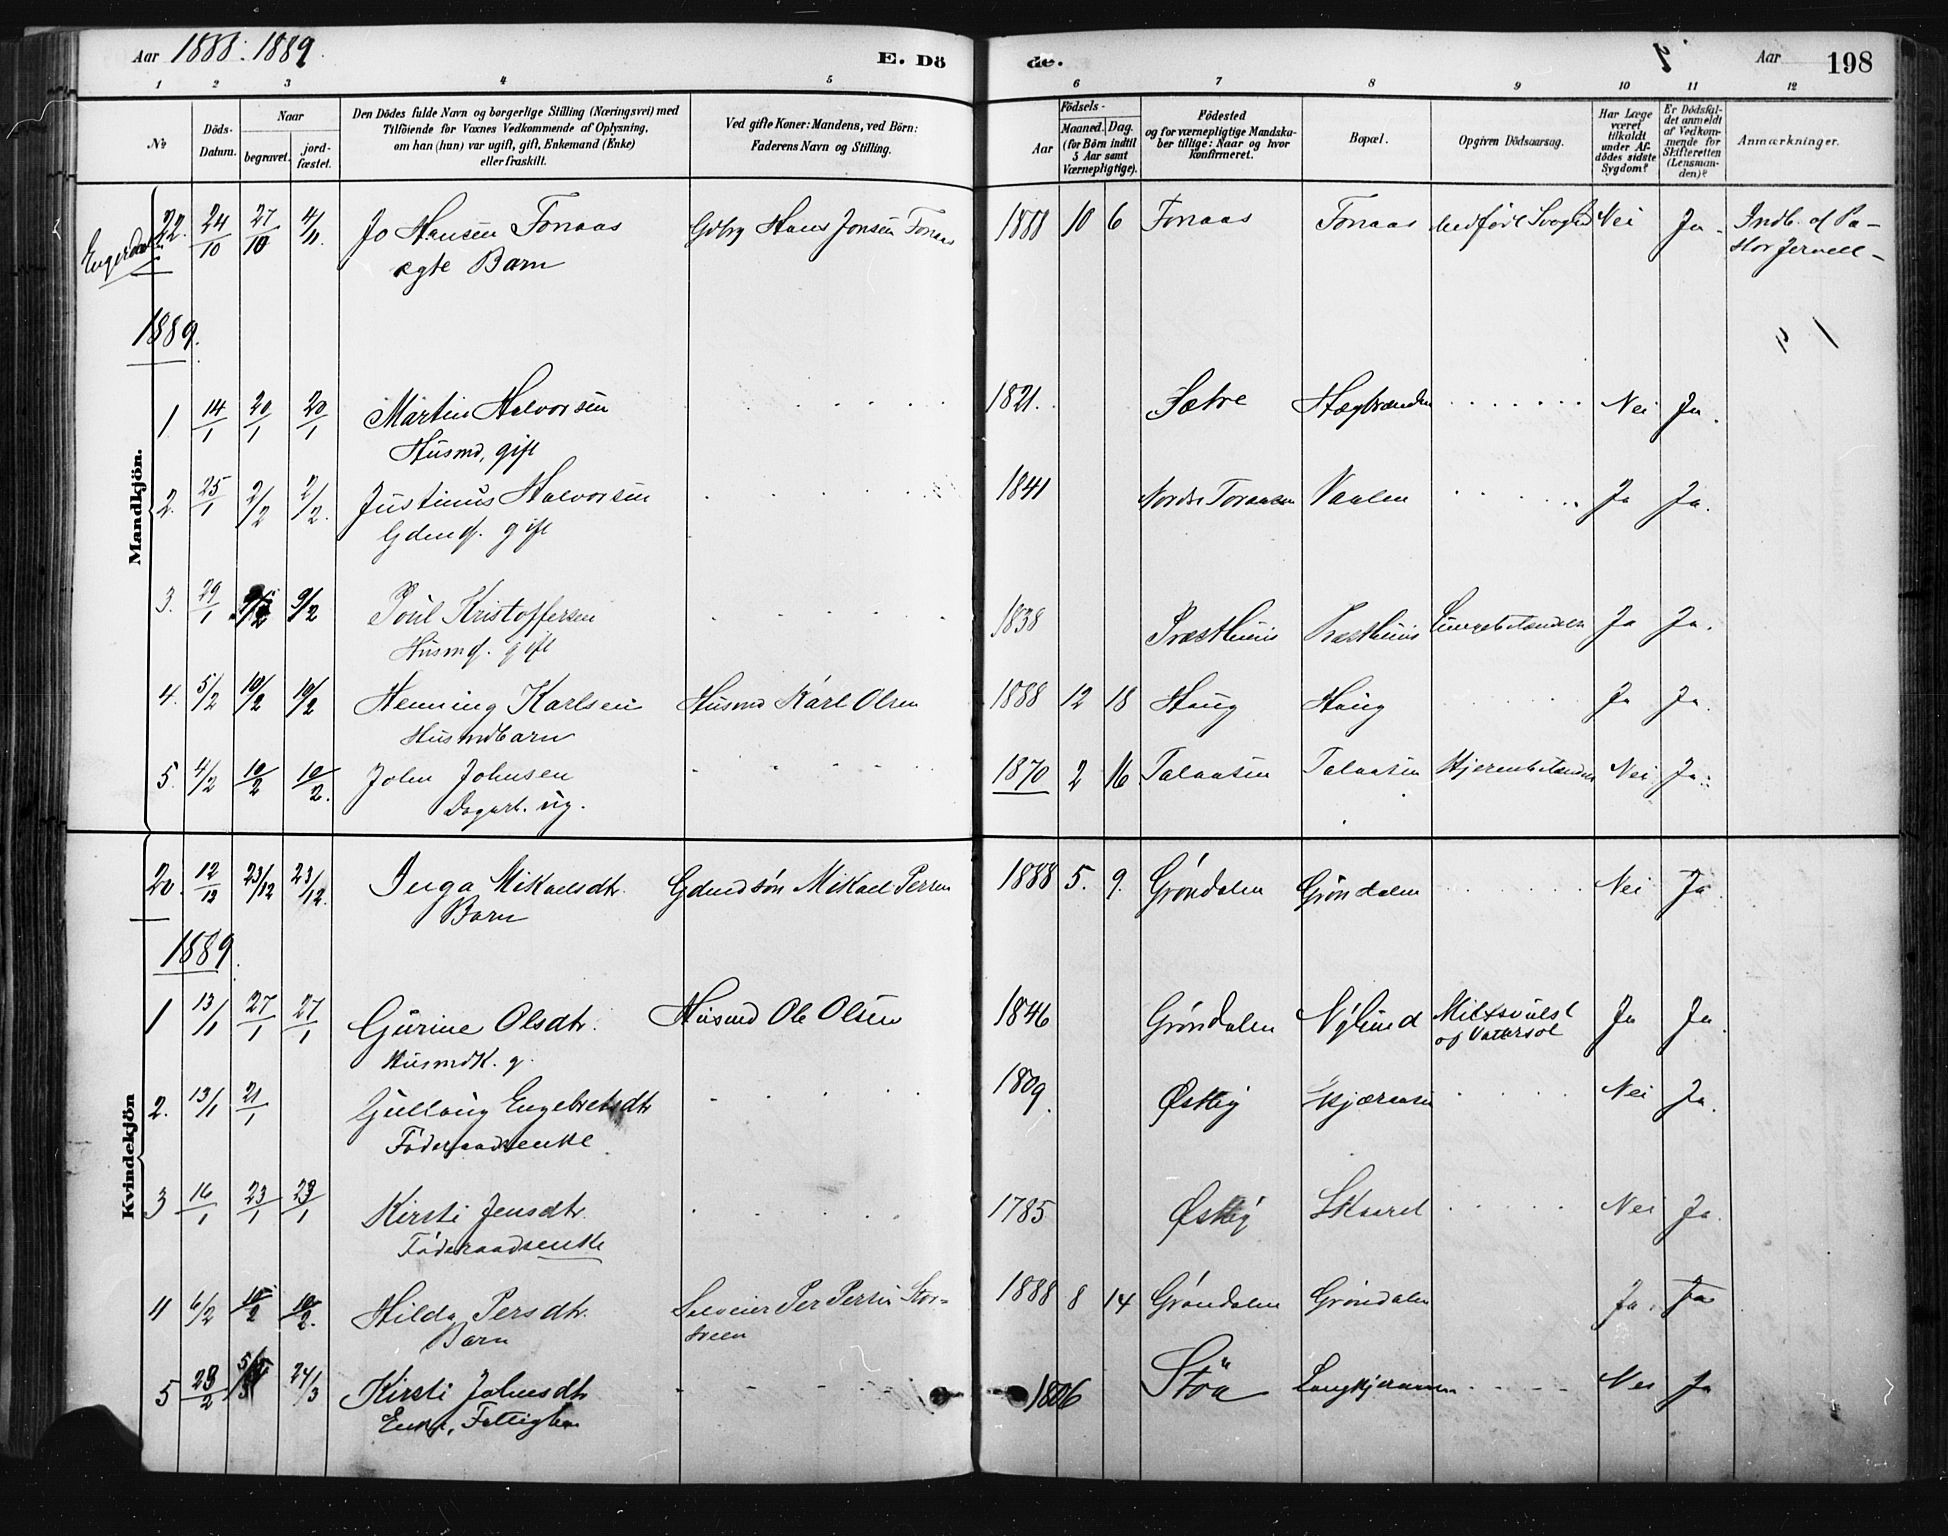 Aar 1888. 1889. E. Dö
de. Aar 198
1 2 3 4 5 6 7 8 9 10 11 12
No. Döds-Datum. Naar begravet. jordfæstet.
Den Dödes fulde Navn og borgerlige Stilling (Næringsvei) med
Tilföiende for Voxnes Vedkommende af Oplysning,
om han (hun) var ugift, gift, Enkemand (Enke)
eller fraskilt.
Ved gifte Koner: Mandens, ved Börn:
Faderens Navn og Stilling.
Födsels-
Aar Maaned. Dag.
(for Börn indtil
5 Aar samt
Værnepligtige).
Födested
og for værnepligtige Mandska-
ber tillige: Naar og hvor
konfirmeret.
Bopæl.
Opgiven Dödsaarsag.
Har Læge
været
tilkaldt
under Af-
dödes sidste
Sygdom?
Er Dödsfal-
det anmeldt
af Vedkom-
mende for
Skifteretten
(Lensman-
den)?
Anmærkninger.
Mandkjön.
Engerdal
22. 24/10 27/10 4/11 Jo Hansen Fonaas Hans Jonsen Fonaas 1888 10 6 Fonaas Fonaas Medfödt Svaghed Nei Ja Indb. af Pa-
ægte Barn stor Jervell-
1889.
1 14/1 20/1 20/1 Martin Halvorsen 1821. Sætre Nei Ja.
Husmd, gift
2. 25/1 2/2 2/2. Justinus Halvorsen 1841 Nordre Toraasen Vaalen Ja Ja.
Gdmd. gift
3. 29/1 9/2 9/2 Poul Kristoffersen 1838 Præsthuus Præsthuus Lungebetændelse Ja Ja.
Husmd. gift
4. 5/2 10/2 10/2 Henning Karlsen Husmd Karl Olsen 1888 12 18 Haug Haug Ja Ja.
Husmdbarn
5. 4/2 10/2 10/2. John Johnsen 1870 2 16 Talaasen Talaasen Hjernebetændelse Nei Ja.
Dagarb. ug.
Kvindekjön
20. 12/12 23/12 23/12. Inga Mikaelsdtr. Gdmdsön Mikael Persen 1888 5. 9. Gröndalen Gröndalen Nei Ja
Barn
1889.
1 13/1 27/1 27/1 Gurine Olsdtr. Husmd Ole Olsen 1846 Gröndalen Nylund Miltsvulst Ja Ja.
HusmdK. g. og Vattersot
2. 13/1 21/1 Gullaug Engebretsdtr 1809. Østby Skjæraasen Nei Ja.
Föderaadsenke
3 16/1 23/1 23/1 Kirsti Jensdtr. 1785 Østby Skaaret Nei Ja.
Föderaadsenke
4 6/2 10/2 10/2. Hilda Persdtr. Selveier Per Persen Stor- 1888 8 14 Gröndalen Gröndalen Ja. Ja
Barn sveen
5 23/2 5/3 24/3 Kirsti Johnsdtr 1806 Støa Nei Ja
Enke, Fattiglem